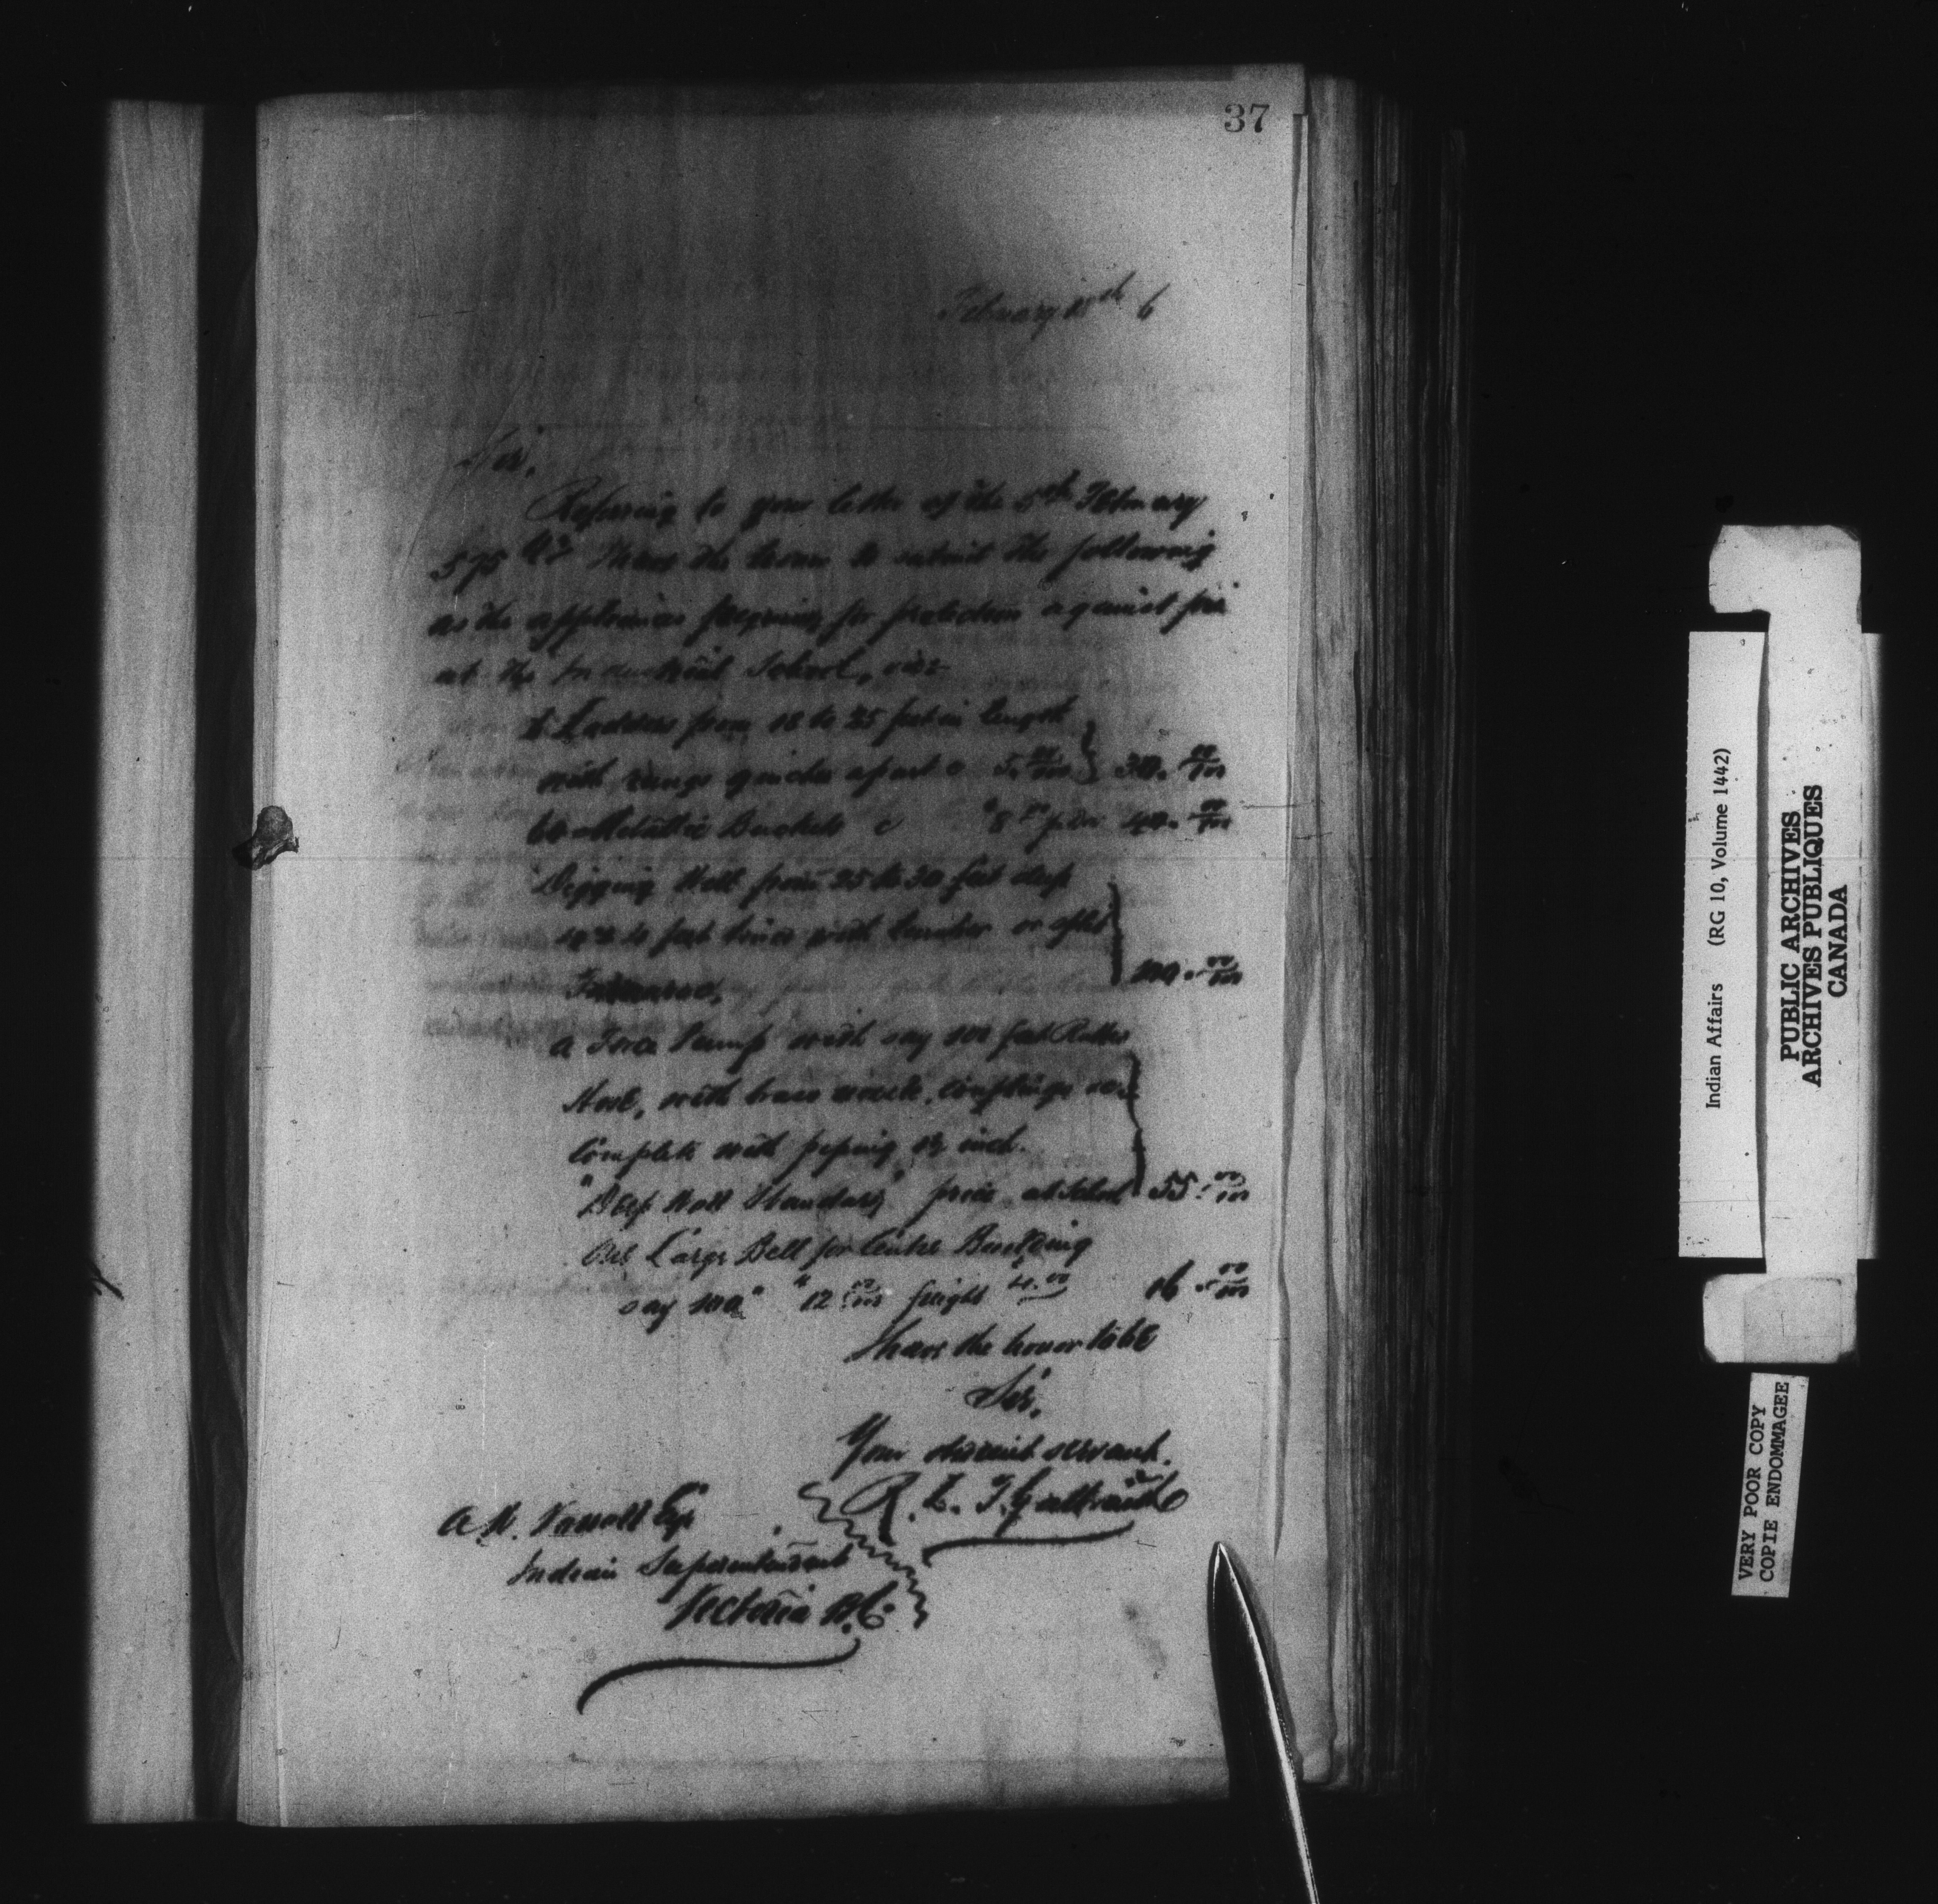 37
February 6
Sir,
Referring to your letter of the 5th February
575 I have the honor to submit the following
as the appliances for protection against fire
at the Industrial School, viz:
6 Ladders from 18 to 25 feet in length
with rungs 9 inches apart @ 5.00/100 } 30.00/100
60 Metallic Buckets @ "8.00 p. Doz 40.00/100
Digging Well from 25 to 30 feet deep
feet with lumber or
100.00/100
A Force Pump with say 100 feet Rubber
Hose, with brass nozzle, couplings
complete with piping inch.
"Deep Well Standard" price at School 55.00/100
One Large Bell for Centre Building
say 100 "12.00/100 freight 4.00 16.00/100
I have the honor to be
Sir,
Your obedient servant.
R. L. T. Galbraith
A W. Vowell Esq
Indian Superintendent
Victoria B.C.
Indian Affairs (RG 10, Volume 1442)
PUBLIC ARCHIVES
ARCHIVES PUBLIQUES
CANADA
VERY POOR COPY
COPIE ENDOMMAGEE